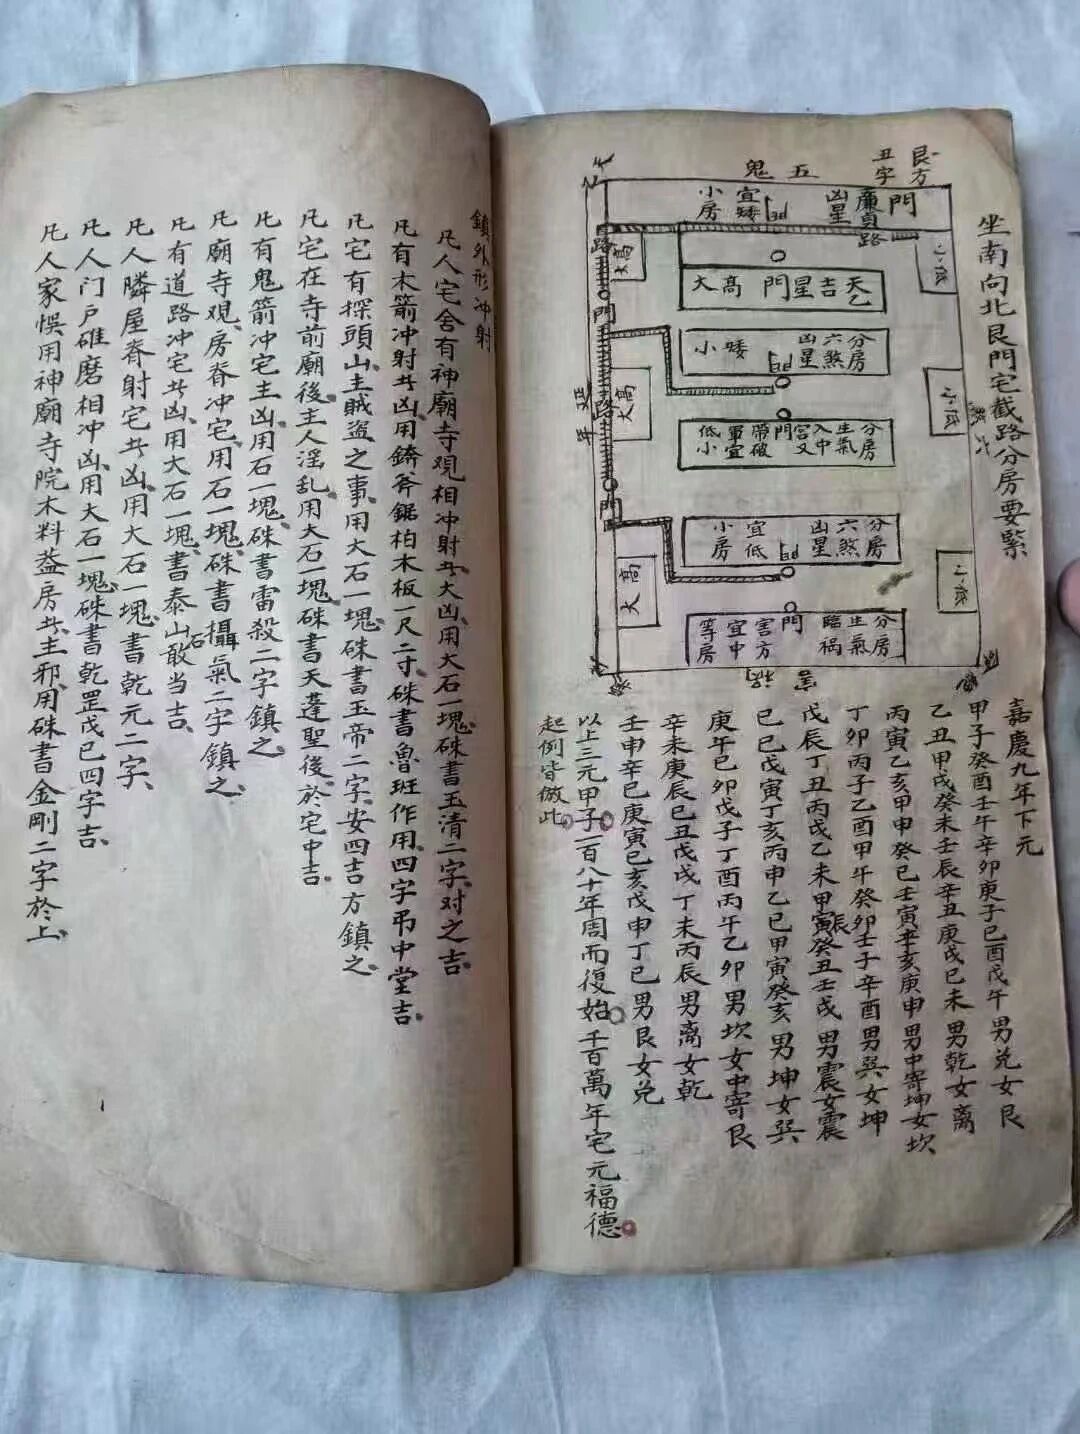 坐南向北艮門宅截路分房要緊
艮方
丑字
五鬼
門
廉貞
凶星
路
宜矮
小房
小低
大高
路
門
天乙吉星門高大
分房六煞凶星
矮小
小低
大高
路
延年
六煞
分房生氣入中宮又門帶破軍宜低小
門
分房六煞凶星
宜低小房
小低
大高
分房生氣臨禍門害方宜中等房
嘉慶九年下元
甲子癸酉壬午辛卯庚子己酉戊午男兌女艮
乙丑甲戌癸未壬辰辛丑庚戌己未男乾女离
丙寅乙亥甲申癸巳壬寅辛亥庚申男中寄坤女坎
丁卯丙子乙酉甲午癸卯壬子辛酉男巽女坤
戊辰丁丑丙戌乙未甲辰癸丑壬戌男震女震
己巳戊寅丁亥丙申乙巳甲寅癸亥男坤女巽
庚午己卯戊子丁酉丙午乙卯男坎女中寄艮
辛未庚辰己丑戊戌丁未丙辰男离女乾
壬申辛巳庚寅己亥戊申丁巳男艮女兌
以上三元甲子一百八十年周而復始千百萬年宅元福德
起例皆倣此
鎮外形冲射
凡人宅舍有神廟寺观相冲射共大凶用大石一塊硃書玉清二字对之吉
凡有木箭冲射共凶用錛斧鋸柏木板一尺二寸硃書魯班作用四字吊中堂吉
凡宅有探頭山主賊盗之事用大石一塊硃書玉帝二字安四吉方鎮之
凡宅在寺前廟後主人淫乱用大石一塊硃書天蓬聖後於宅中吉
凡有鬼箭冲宅主凶用石一塊硃書雷殺二字鎮之
凡廟寺观房脊冲宅用石一塊硃書攝氣二字鎮之
凡有道路冲宅共凶用大石一塊書泰山石敢当吉
凡人隣屋脊射宅共凶用大石一塊書乾元二字
凡人门户碓磨相冲凶用大石一塊硃書乾罡戊己四字吉
凡人家悮用神廟寺院木料蓋房共主邪用硃書金剛二字於上